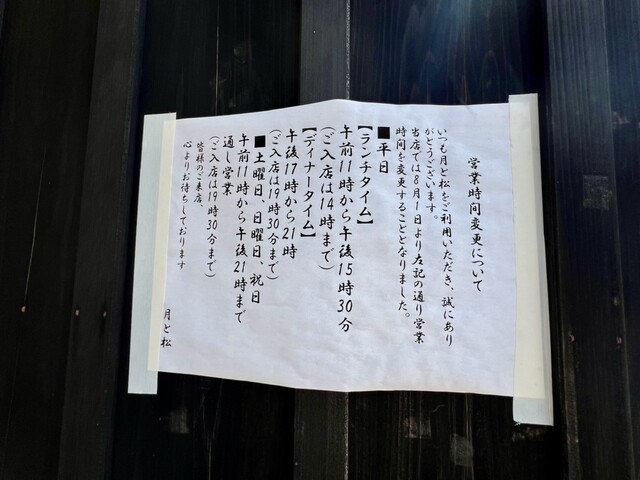 営業時間変更について
いつも月と松をご利用いただき、誠にあり
がとうございます。
当店では8月1日より左記の通り営業
時間を変更することとなりました。
■平日
【ランチタイム】
午前11時から午後15時30分
(ご入店は14時まで)
【ディナータイム】
午後17時から21時
(ご入店は19時30分まで)
■土曜日、日曜日、祝日
午前11時から午後21時まで
通し営業
(ご入店は19時30分まで)
皆様のご来店、
心よりお待ちしております
月と松